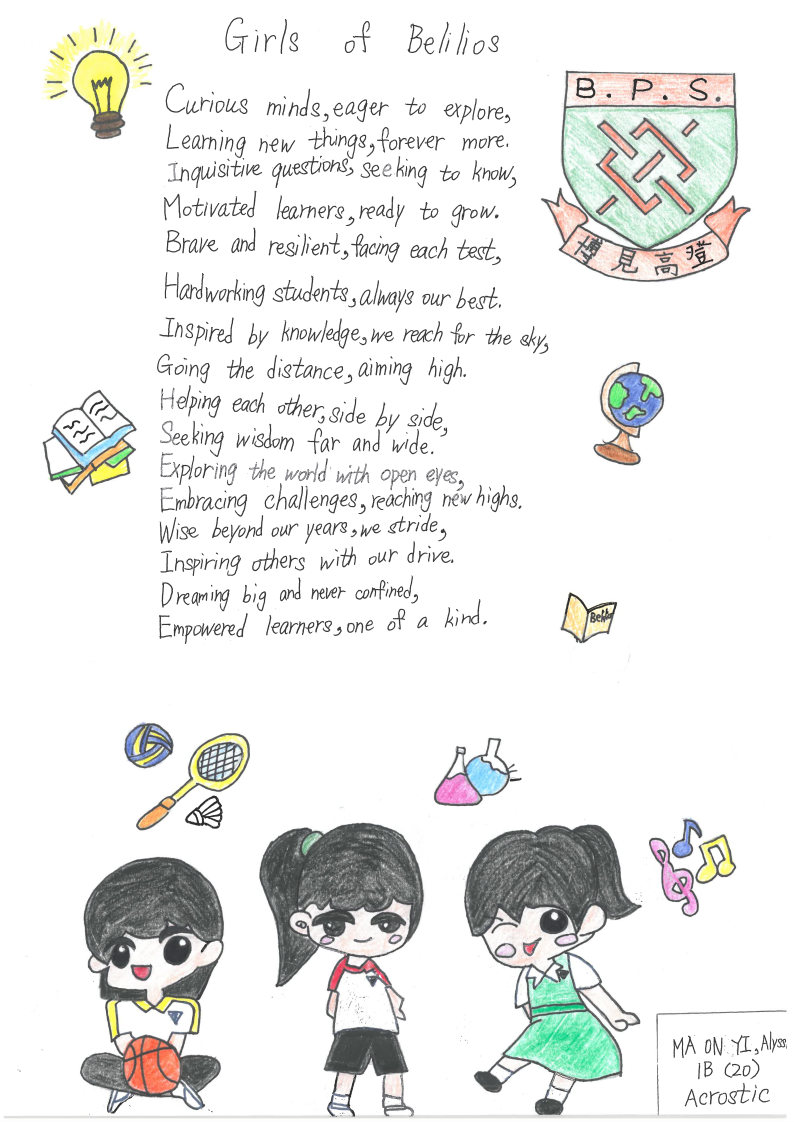 Girls of Belilios
B.P.S.
登高見博
Curious minds, eager to explore,
Learning new things, forever more.
Inquisitive questions, seeking to know,
Motivated learners, ready to grow.
Brave and resilient, facing each test,
Hardworking students, always our best.
Inspired by knowledge, we reach for the sky,
Going the distance, aiming high.
Helping each other, side by side,
Seeking wisdom far and wide.
Exploring the world with open eyes,
Embracing challenges, reaching new highs.
Wise beyond our years, we stride,
Inspiring others with our drive.
Dreaming big and never confined,
Empowered learners, one of a kind.
MA ON YI, Alyss
1B (20)
Acrostic